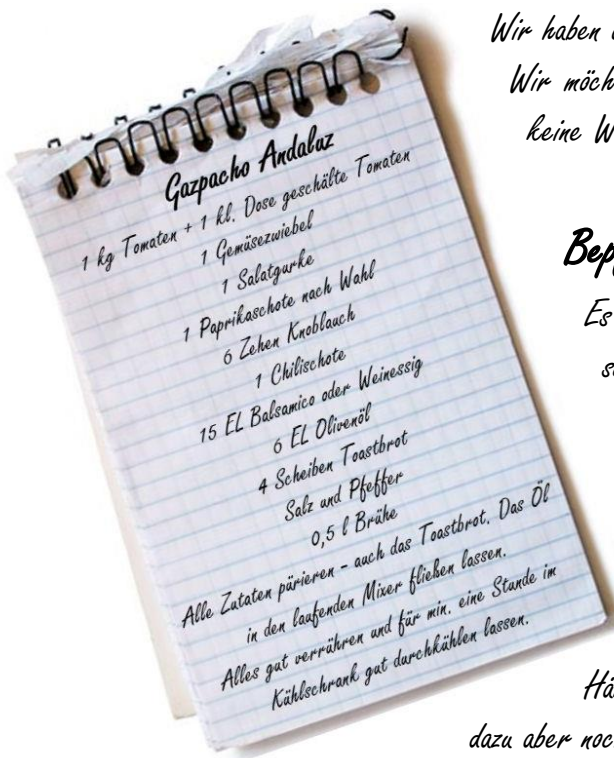 Wir haben
Wir möch
keine W
Gazpacho Andaluz
1 kg Tomaten + 1 kl. Dose geschälte Tomaten
1 Gemüsezwiebel
1 Salatgurke
1 Paprikaschote nach Wahl
6 Zehen Knoblauch
1 Chilischote
15 EL Balsamico oder Weinessig
6 EL Olivenöl
4 Scheiben Toastbrot
Salz und Pfeffer
0,5 l Brühe
Alle Zutaten pürieren - auch das Toastbrot. Das Öl
in den laufenden Mixer fließen lassen.
Alles gut verrühren und für min. eine Stunde im
Kühlschrank gut durchkühlen lassen.
Bep
Es
Hä
dazu aber noc